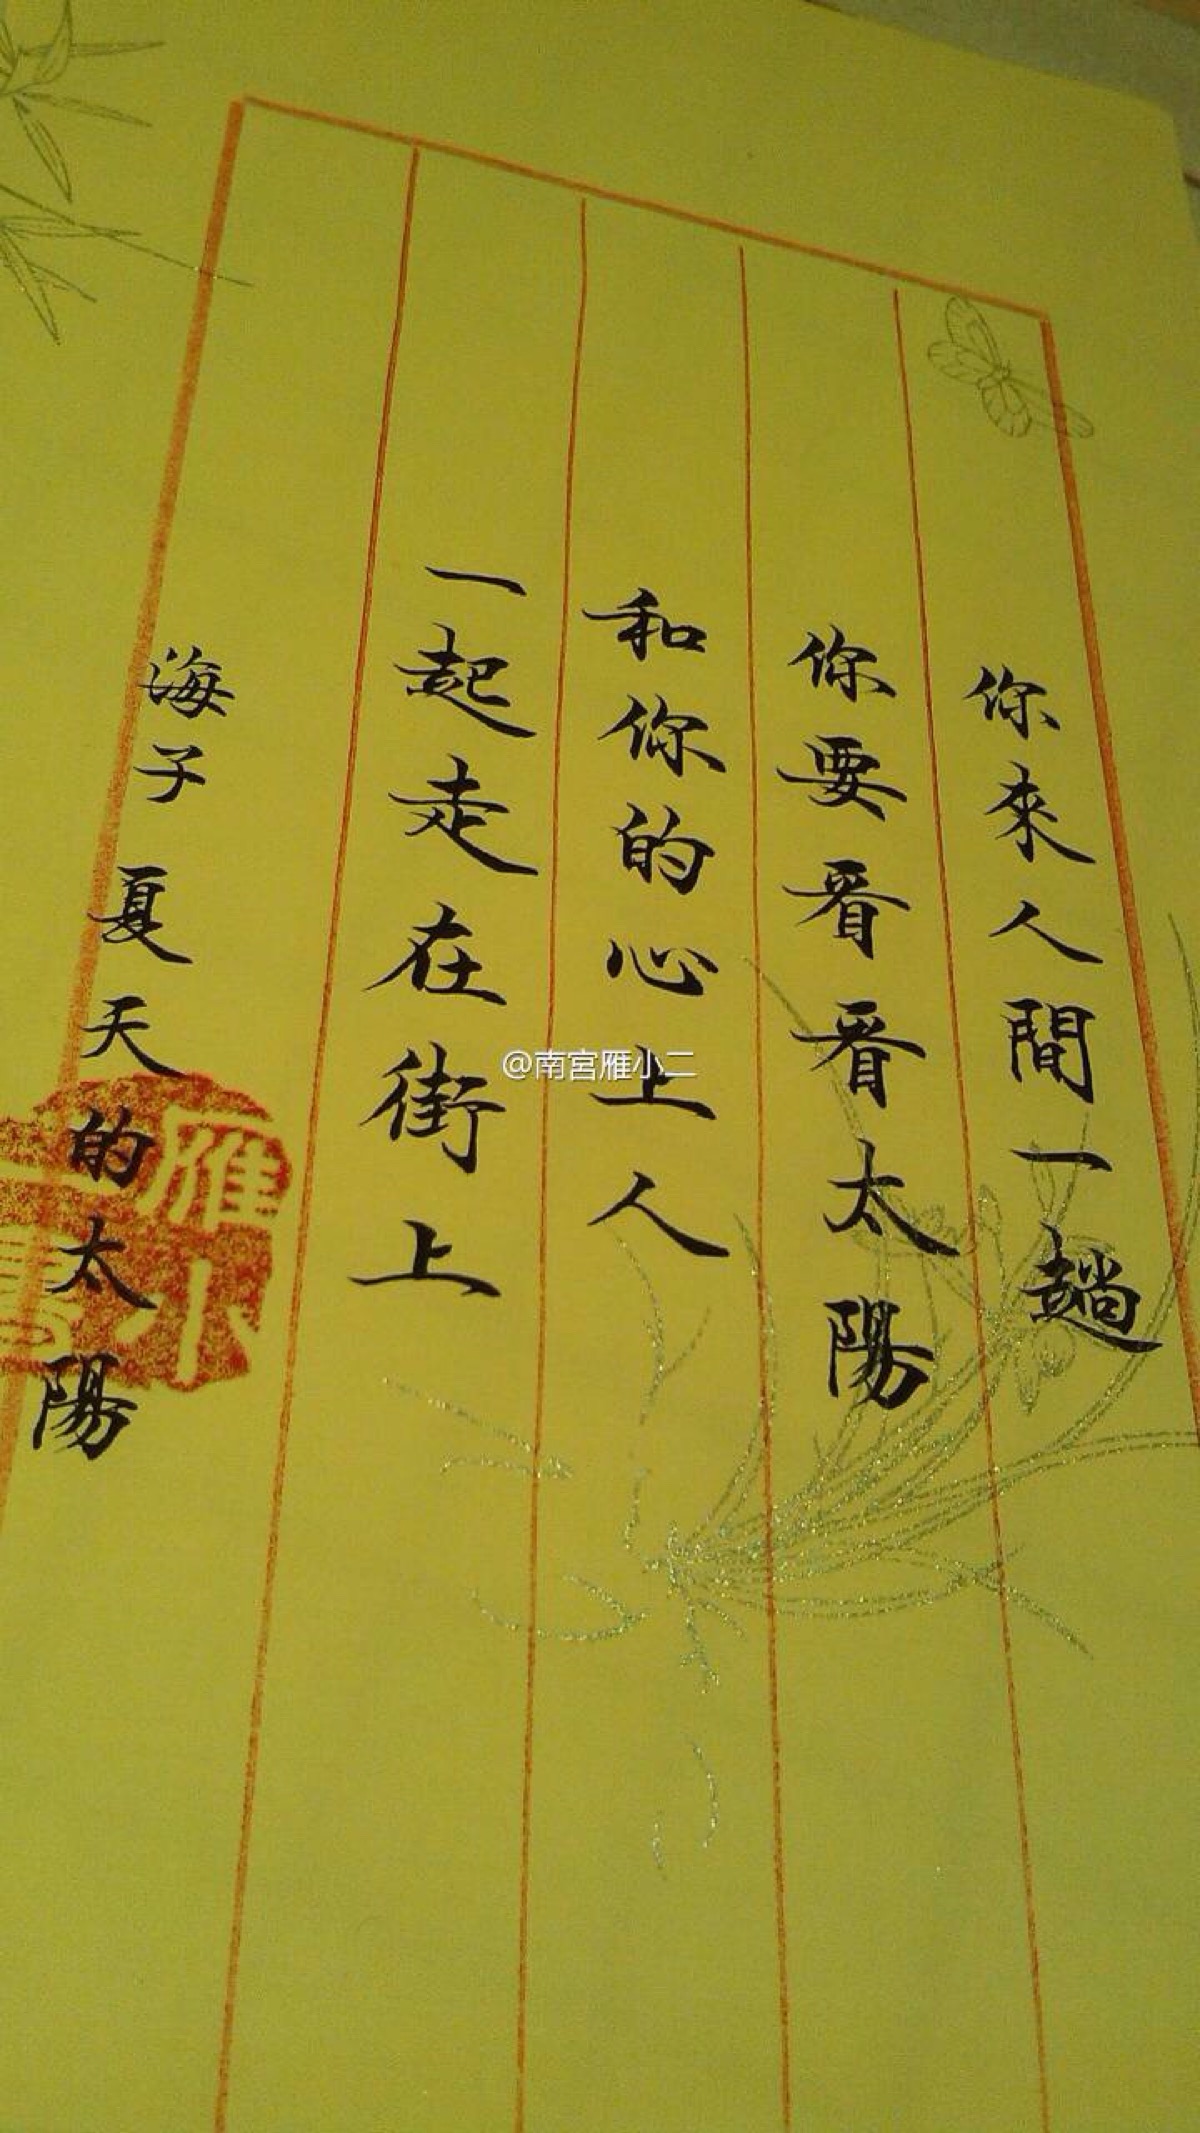 你來人間一趟
你要看看太陽
和你的心上人
一起走在街上
海子 夏天的太陽
雁小二書
@南宮雁小二